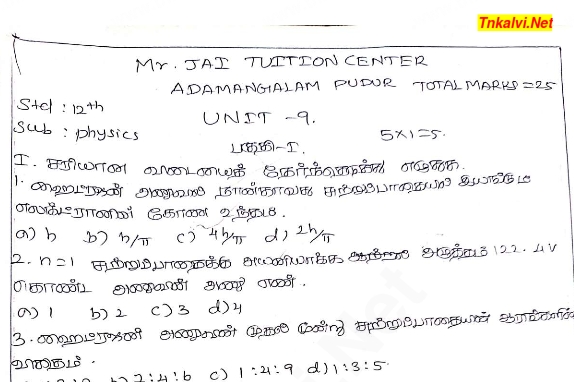 Tnkalvi.Net
Mr. JAI TUITION CENTER
ADAMANGALAM PUDUR TOTAL MARKS = 25
Std : 12th
UNIT - 9.
Sub : physics
5x1=5.
பகுதி-I.
I. சரியான விடையைத் தேர்ந்தெடுத்து எழுதுக.
1. ஹைட்ரஜன் அணுவில் நான்காவது சுற்றுப்பாதையில் இயங்கும்
எலக்ட்ரானின் கோண உந்தம்.
a) h b) h/π c) 4h/π d) 2h/π
2. n=1 சுற்றுப்பாதைக்கு அயனியாக்க ஆற்றல் அழுத்தம் 122.4V
கொண்ட அணுவின் அணு எண்.
a) 1 b) 2 c) 3 d) 4
3. ஹைட்ரஜன் அணுவின் முதல் மூன்று சுற்றுப்பாதையின் ஆரங்களின்
விகிதம்.
b) 2:4:6 c) 1:4:9 d) 1:3:5